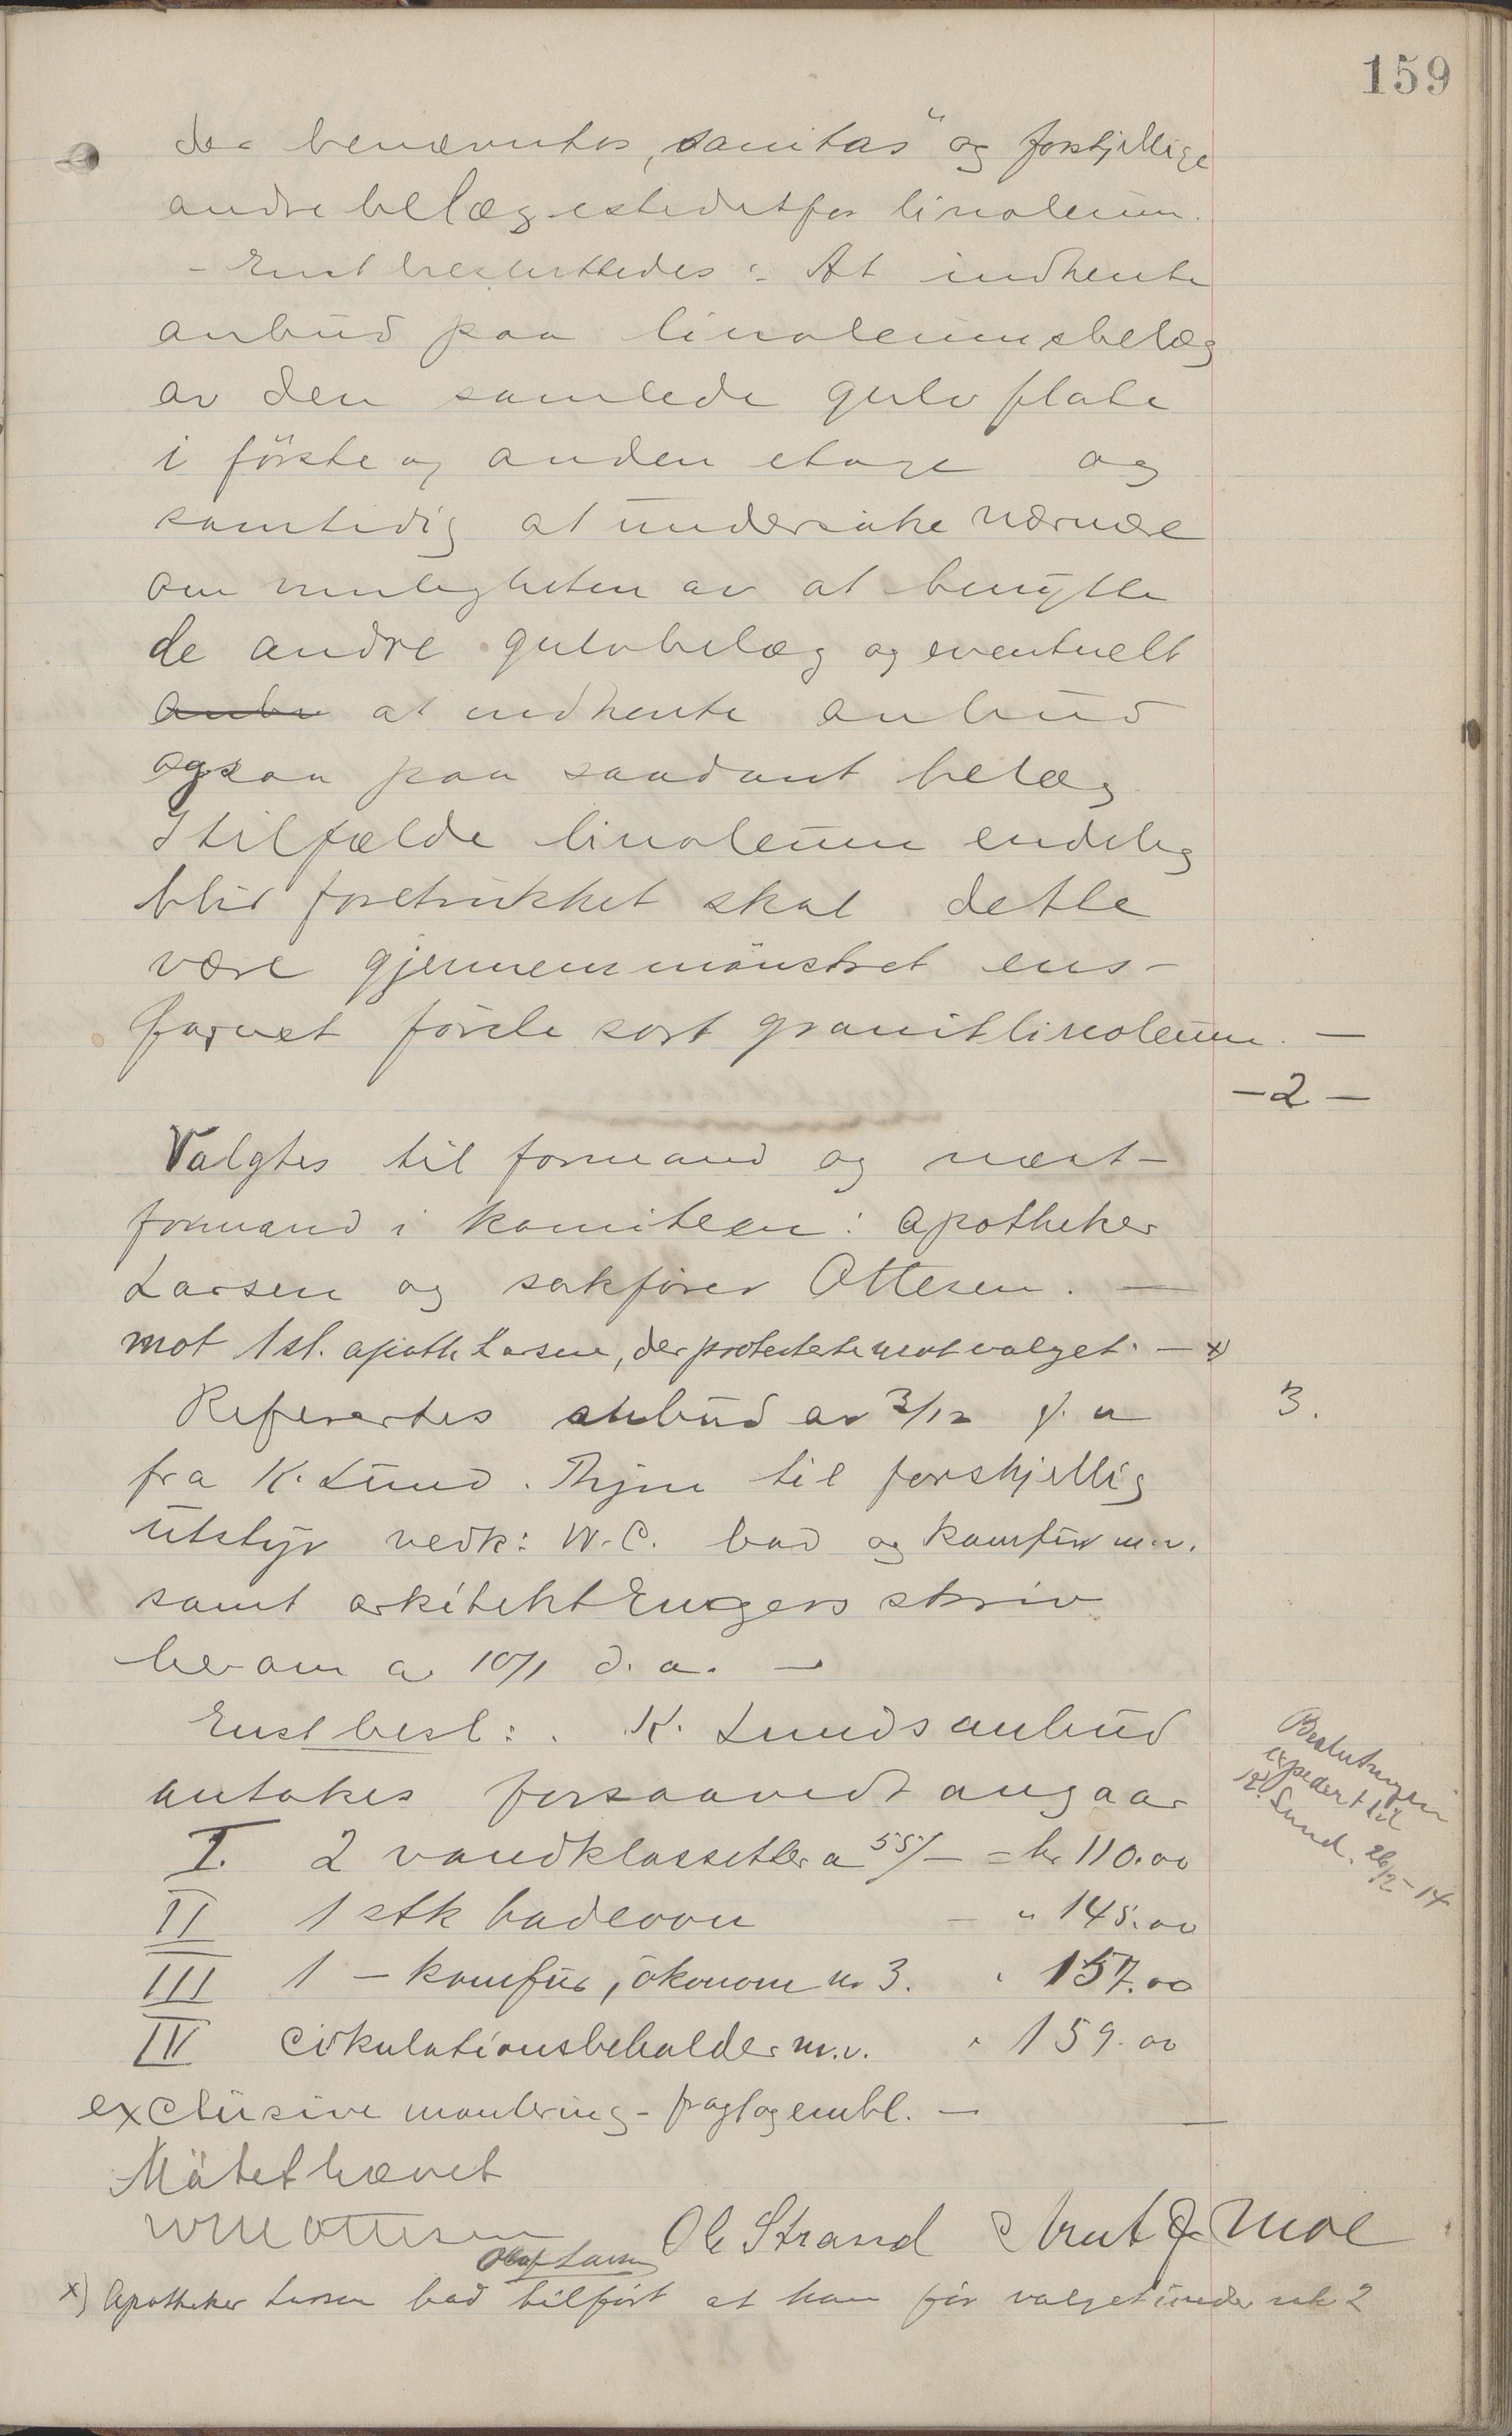 159
der benævntes „sanitas" og forskjellige
andre belæg istedetfor linoleum.
- Enst besluttedes: At indhente
anbud paa linoleumsbelæg
av den samlede gulvflate
i förste og anden etage og
samtidig at undersöke nærmere
om muligheten av at benytte
de andre gulvbelæg og eventuelt
anbu at indhente anbud
ogsaa paa saadant belæg
I tilfælde linoleum endelig
blir foretrukket skal dette
være gjennemmönstret ens-
farvet förste sort granitlinoleum. —
— 2 —
Valgtes til formand og næst-
formand i komiteen: Apotheker
Larsen og sakförer Ottesen. —
mot 1 st. apoth Larsen, der protesterte mot valget. — x)
3.
Refertes anbud av 3/12 f. a
fra K. Lund. Thjem til forskjellig
utstyr vedk: W.C. bad og komfur m.v.
samt arkitekt Engers skriv
herom av 10/1 d. a. —
Enst besl: K. Lunds anbud
antakes forsaavidt angaar
I. 2 vandklossetter a 55/— = kr 110.00
II 1 stk badeovn — " 145.00
III 1 — komfur, ökonom nr 3. " 157.00
IV Cirkulationsbeholder m.v. " 159.00
exclusive montering - fragt og embl. —
Beslutningen
expedert til
K. Lund. 26/2-14
Mötet hævet
Ottesen Ole Strand Knut J. Moe
Olaf Larsen
x) Apotheker Larsen bad tilfört at han för valget under sak 2